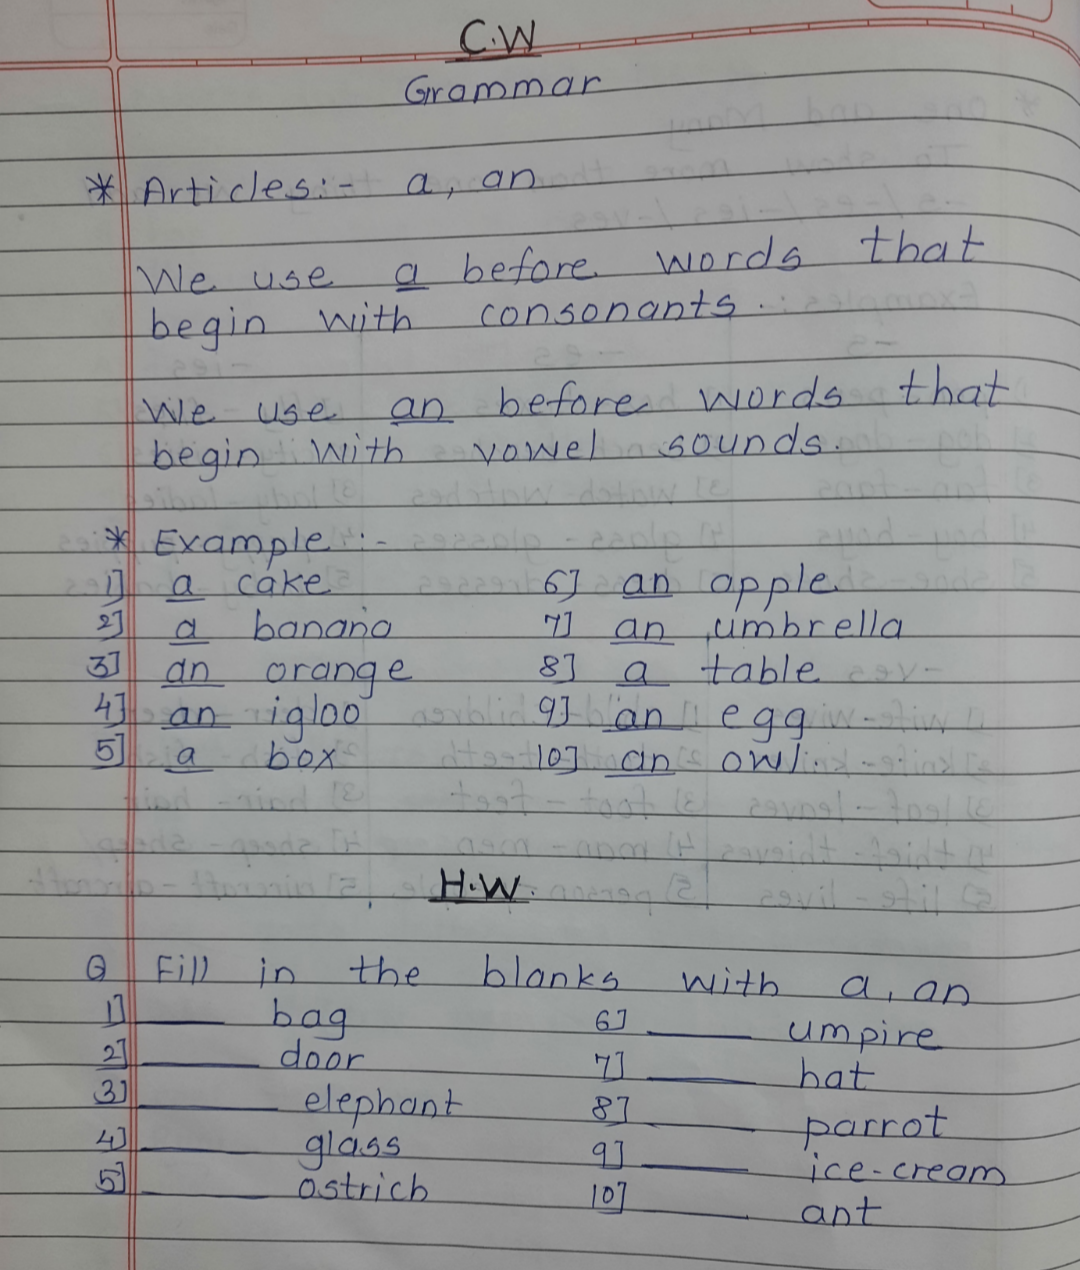 C.W
Grammar
* Articles:- a, an
We use a before words that
begin with consonants.
We use an before words that
begin with vowel sounds.
* Example:-
1] a cake 6] an apple
2] a banana 7] an umbrella
3] an orange 8] a table
4] an igloo 9] an egg
5] a box 10] an owl
H.W.
Q Fill in the blanks with a, an
1] ____ bag 6] ____ umpire
2] ____ door 7] ____ hat
3] ____ elephant 8] ____ parrot
4] ____ glass 9] ____ ice-cream
5] ____ ostrich 10] ____ ant